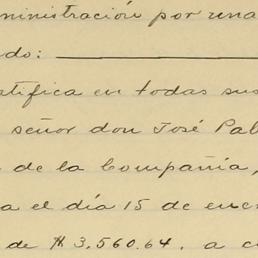 ministración por una
do:
tifica en todas sus
señor don José Pal
de la Compañía,
a el día 15 de ene
de $ 3,560.64, a c